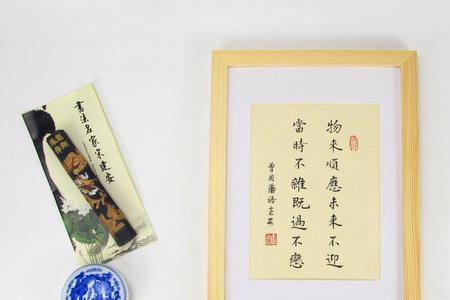 物來順應未來不迎
當時不雜既過不戀
曾國藩語建安
書法名家宋建安